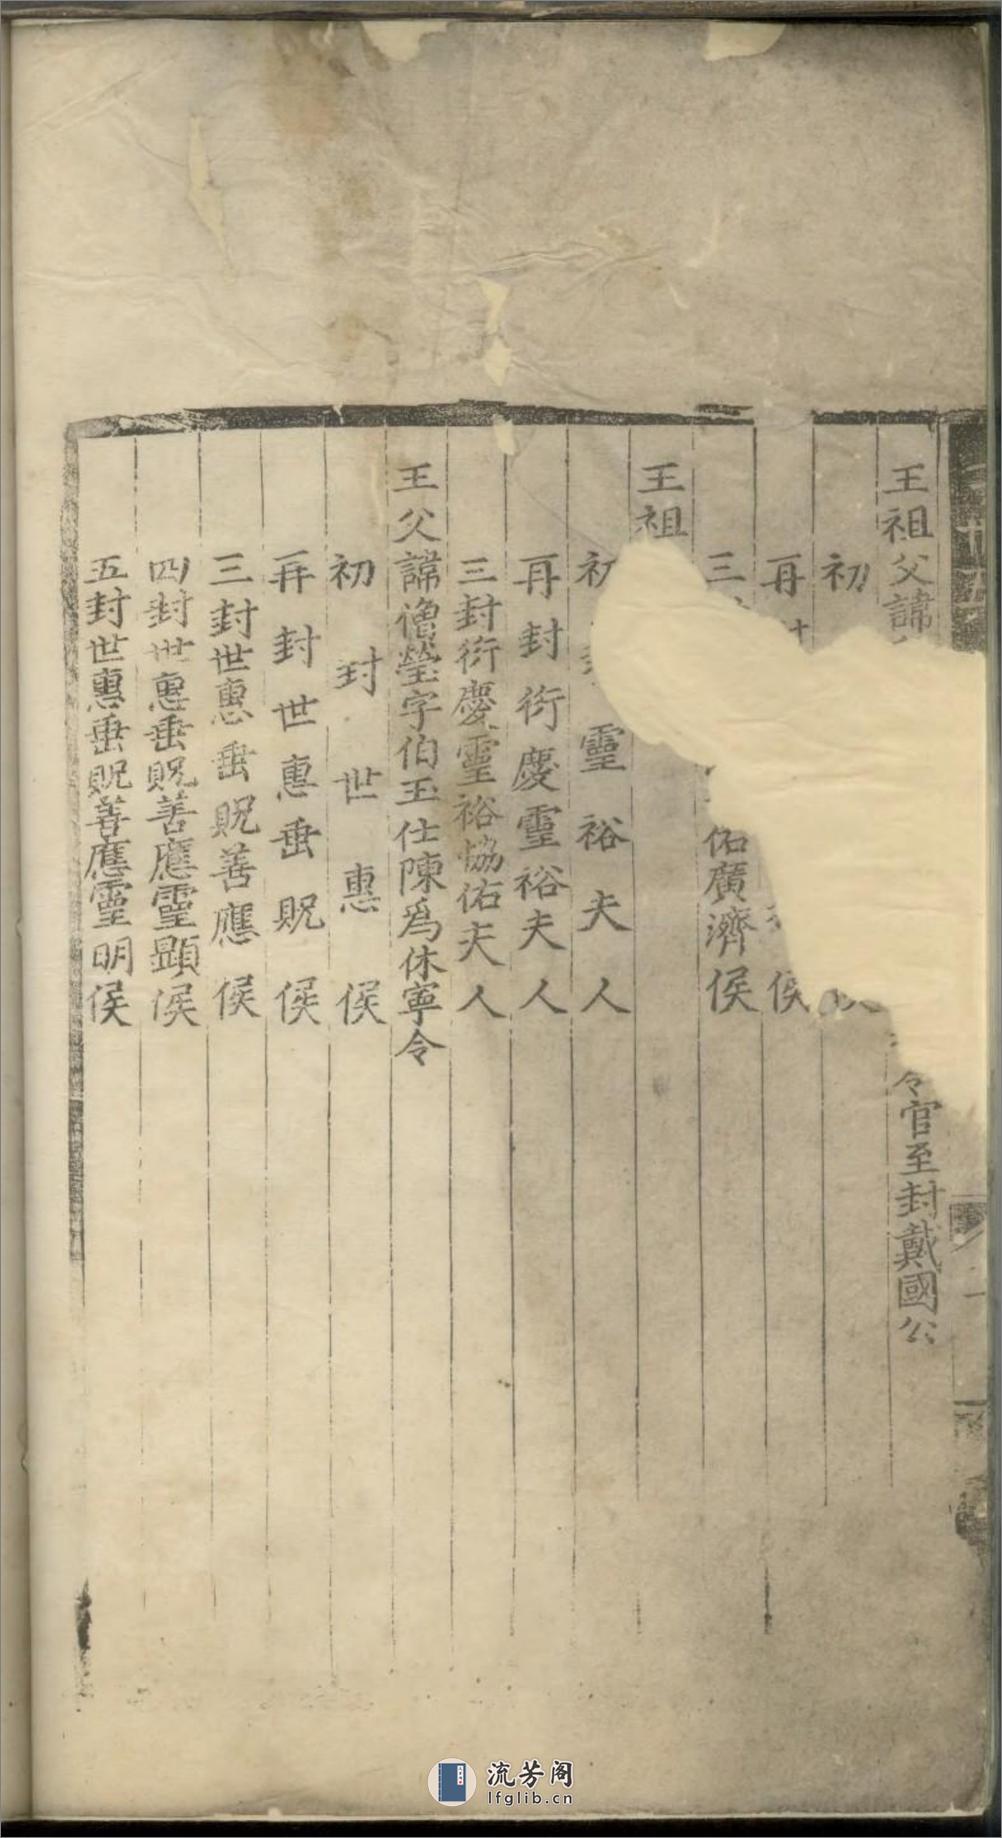 王祖父諱
令官至封戴國公
初
再
侯
三
佑廣濟侯
王祖
初
靈裕夫人
再封衍慶靈裕夫人
三封衍慶靈裕協佑夫人
王父諱僧瑩字伯玉仕陳爲休寧令
初封世惠侯
再封世惠垂貺侯
三封世惠垂貺善應侯
四封世惠垂貺善應靈顯侯
五封世惠垂貺善應靈明侯
流芳阁
lfglib.cn